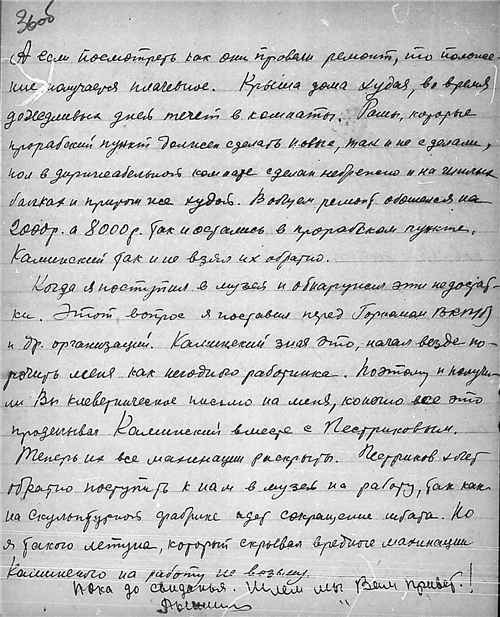 36об
А если посмотреть как они провели ремонт, то положе-
ние получается плачевное. Крыша дома худая, во время
дождливых дней течет в комнаты. Рамы, которые
прорабский пункт должен сделать новые, так и не сделали,
пол в дирижабельной комнате сделан небрежно и на гнилых
балках и притом же худой. Вобщем ремонт обошелся на
2000р. а 8000р. так и остались в прорабском пункте.
Калининский так и не взял их обратно.
Когда я поступил в музей и обнаружил эти недостат-
ки. Этот вопрос я поставил перед Горкомом ВКП(б)
и др. организаций. Калининский зная это, начал везде по-
рочить меня как негодного работника. Поэтому и получи-
ли Вы клеветническое письмо на меня, конечно все это
проделывал Калининский вместе с Пестриковым.
Теперь их все махинации раскрыты. Пестриков хочет
обратно поступить к нам в музей на работу, так как
на скульптурной фабрике идет сокращение штата. Но
я такого летуна, который скрывал вредные махинации
Калининского на работу не возьму.
Пока до свиданья. Шлем мы Вам привет!